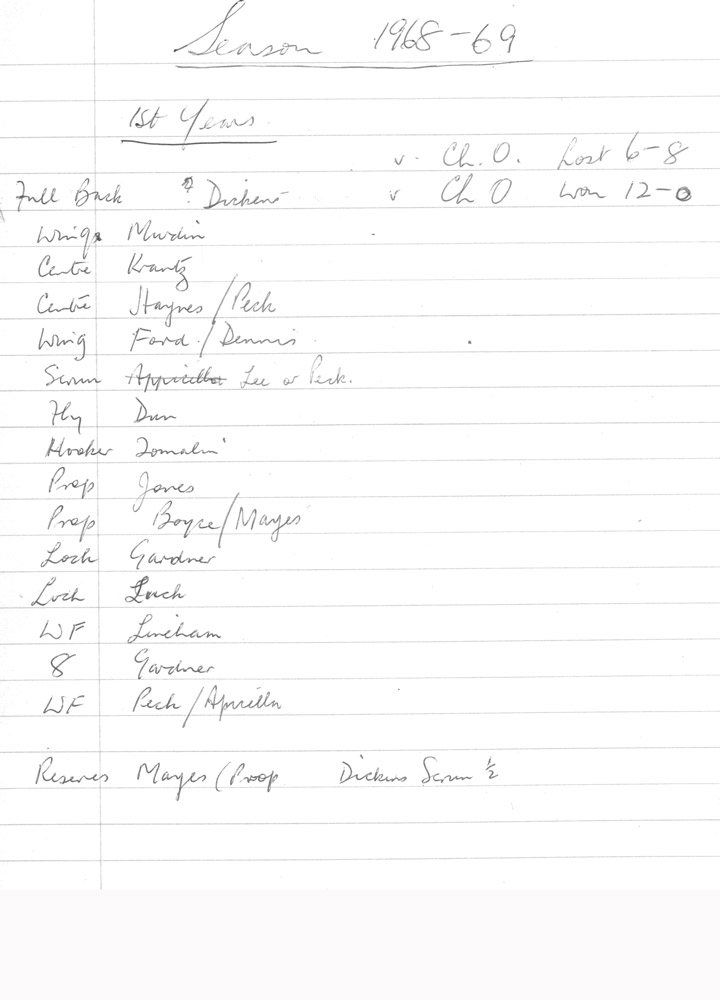 Season 1968-69
1st Years
v. Ch. O. Lost 6-8
Full Back ? Dickens v Ch O won 12-0
Wing Murdin
Centre Krantz
Centre Haynes / Peck
Wing Ford / Dennis
Scrum Lee or Peck.
Fly Dun
Hooker Tomalin
Prop Jones
Prop Boyce / Mayes
Lock Gardner
Lock Luck
WF Lineham
8 Gardner
WF Peck / Aprilla
Reserves Mayes (Prop Dickens Scrum ½